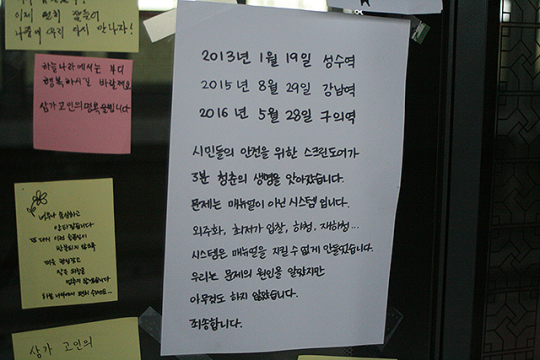 이제 편히 잠들어
나중에 우리 다시 만나자!
하늘나라에서는 부디
행복하시길 바랄게요
삼가 고인의 명복을 빕니다
2013년 1월 19일 성수역
2015년 8월 29일 강남역
2016년 5월 28일 구의역
시민들의 안전을 위한 스크린도어가
3분 청춘의 생명을 앗아갔습니다.
문제는 매뉴얼이 아닌 시스템입니다.
외주화, 최저가 입찰, 하청, 재하청...
시스템은 매뉴얼을 지킬 수 없게 만들었습니다.
우리는 문제의 원인을 알았지만
아무것도 하지 않았습니다.
죄송합니다.
삼가 고인의